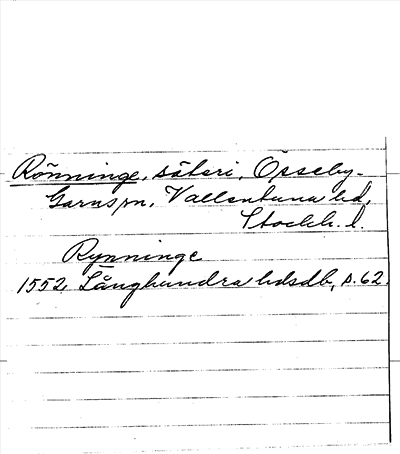 Rönninge, säteri, Össeby-
Garns sn, Vallentuna hd,
Stockh. l.
Rynninge
1552 Långhundra hdsdb, s. 62.